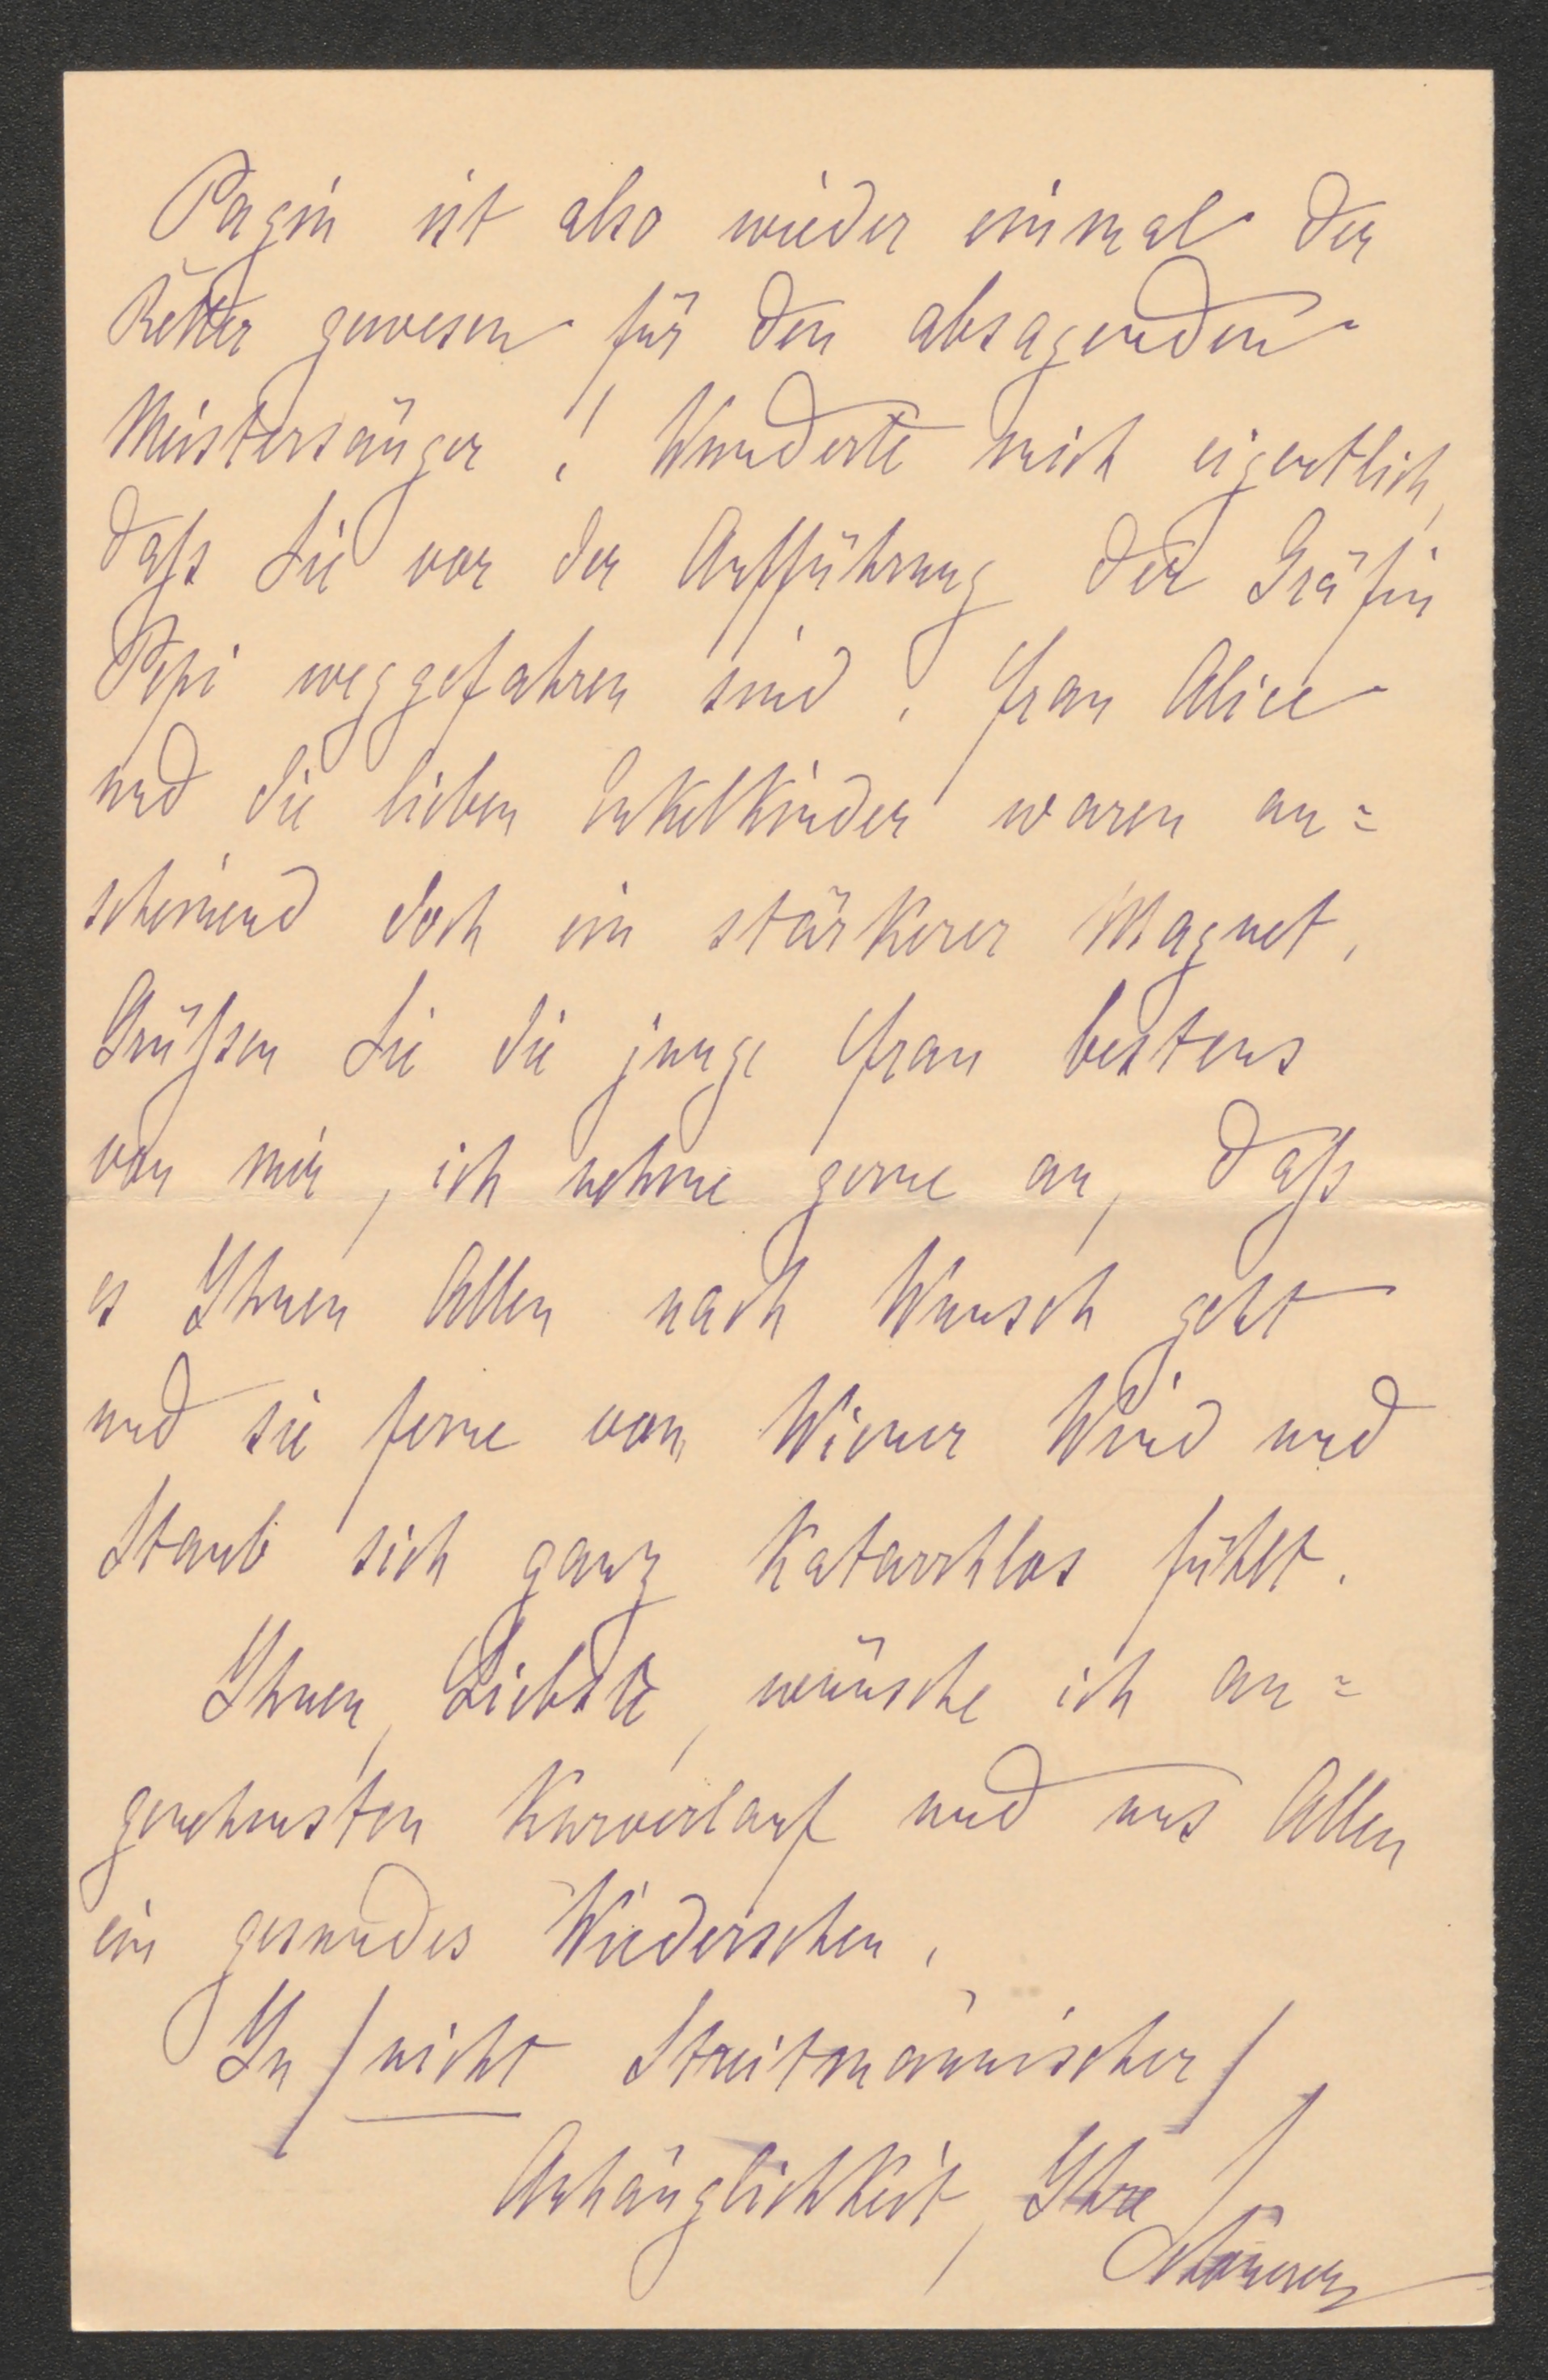 Pagin ist also wieder einmal der
Retter gewesen für den absagenden
Meistersänger! Wunderte mich eigentlich,
daß Sie vor der Aufführung der Gräfin
Pepi weggefahren sind. Frau Alice
und die lieben Enkelkinder waren an=
scheinend doch ein stärkerer Magnet.
Grüßen Sie die junge Frau bestens
von mir, ich nehme gerne an, daß
es Ihnen Allen nach Wunsch geht
und sie ferne von Wiener Wind und
Staub sich ganz Katarrhlos fühlt.
Ihnen, Liebste, wünsche ich an=
genehmsten Kurverlauf und uns Allen
ein gesundes Wiedersehen.
In /nicht Streitmännischer/
Anhänglichkeit, Ihre